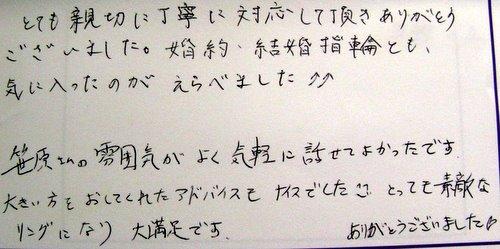 とても親切に丁寧に対応して頂きありがとう
ございました。婚約・結婚指輪とも、
気に入ったのが えらべました⤴⤴
笹原さんの雰囲気がよく気軽に話せてよかったです
大きい方をおしてくれたアドバイスもナイスでした とっても素敵な
リングになり 大満足です。 ありがとうございました♪